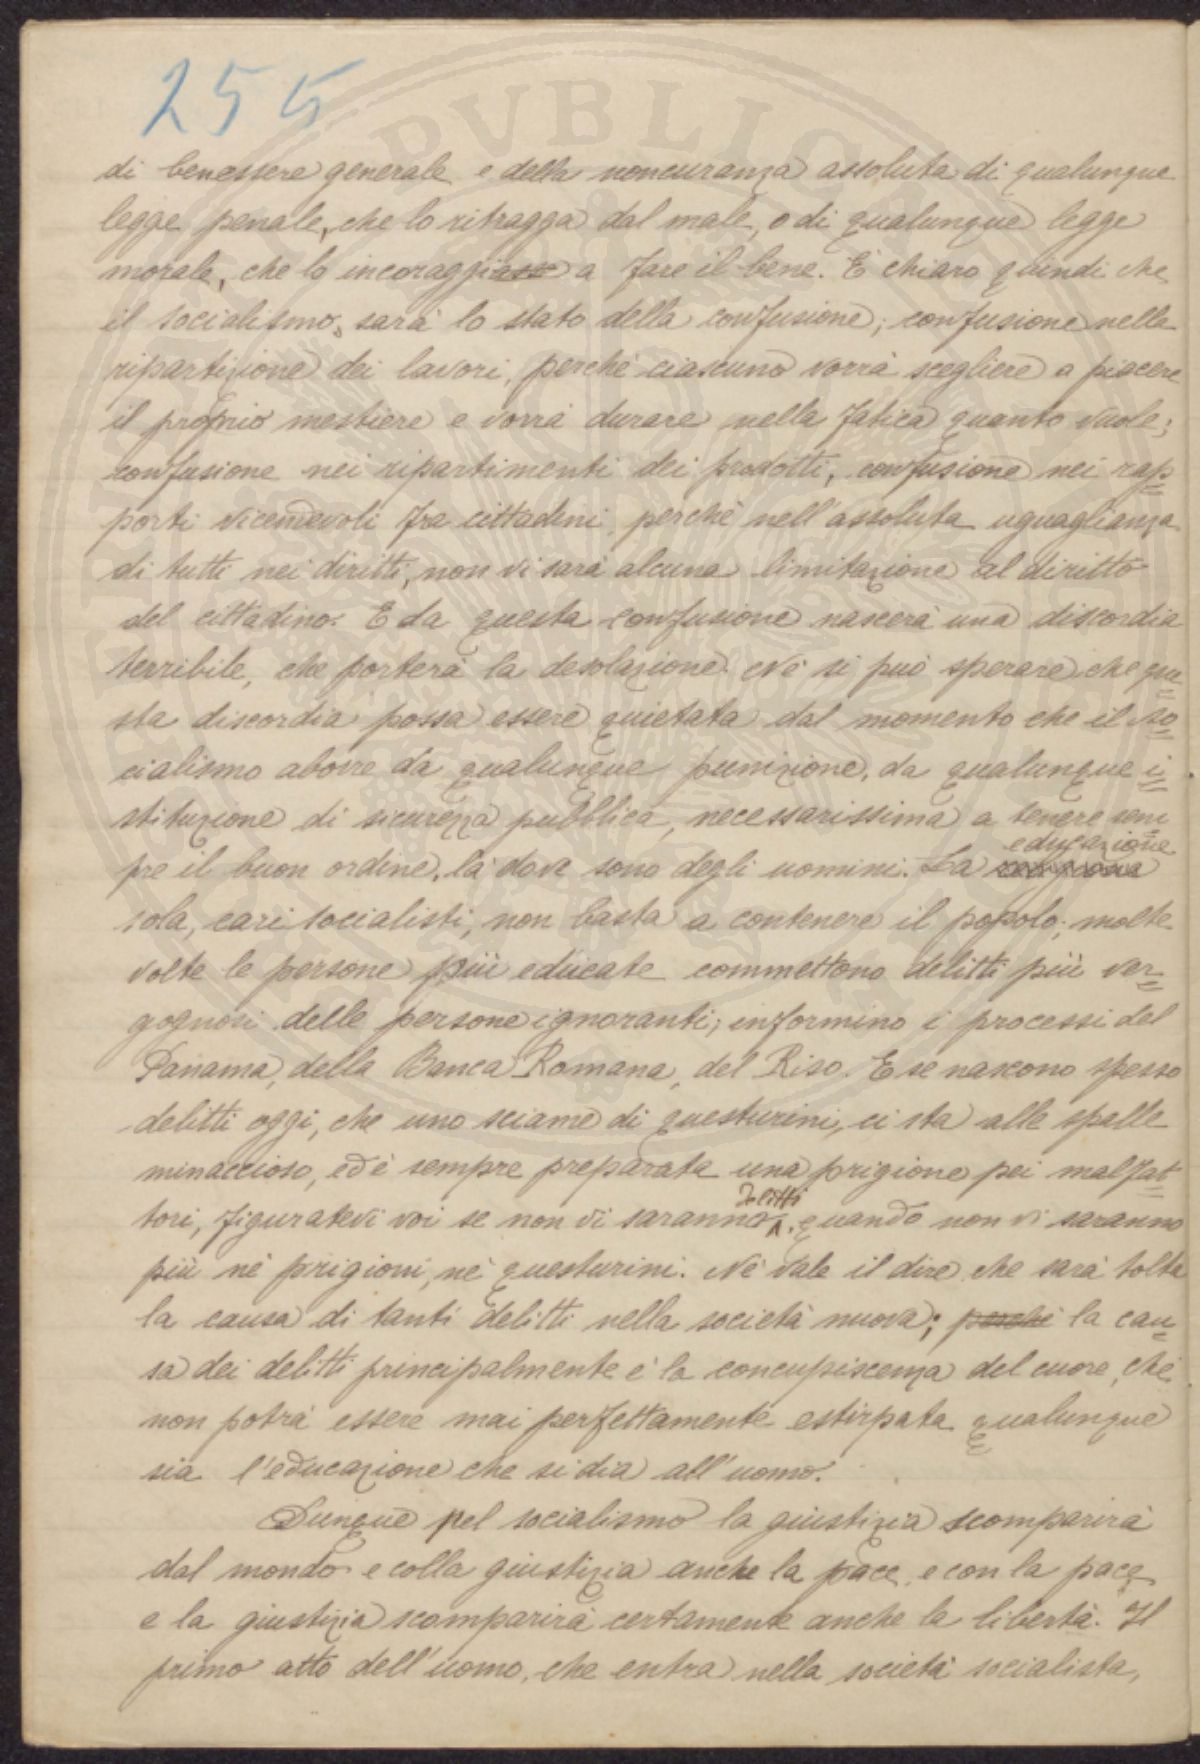 255
di benessere generale e della noncuranza assoluta di qualunque
legge penale, che lo ritragga dal male, o di qualunque legge
morale, che lo incoraggiasse a fare il bene. È chiaro quindi che
il socialismo, sarà lo stato della confusione; confusione nella
ripartizione dei lavori, perchè ciascuno vorrà scegliere a piacere
il proprio mestiere e vorrà durare nella fatica quanto vuole;
confusione nei ripartimenti dei prodotti, confusione nei rap=
porti vicendevoli fra cittadini, perchè nell'assoluta uguaglianza
di tutti nei diritti, non vi sarà alcuna limitazione al diritto
del cittadino. E da questa confusione nascerà una discordia
terribile, che porterà la desolazione. Nè si può sperare che que=
sta discordia possa essere quietata dal momento che il so=
cialismo aborre da qualunque punizione, da qualunque i=
stituzione di sicurezza pubblica, necessarissima a tenere sem
pre il buon ordine, là dove sono degli uomini. La educazione
sola, cari socialisti, non basta a contenere il popolo; molte
volte le persone più educate commettono delitti più ver=
gognosi delle persone ignoranti; informino i processi del
Panama, della Banca Romana, del Riso. E se nascono spesso
delitti oggi, che uno sciame di questurini, ci sta alle spalle
minaccioso, ed è sempre preparata una prigione pei malfat=
tori, figuratevi voi se non vi saranno delitti, quando non vi saranno
più nè prigioni, nè questurini. Nè vale il dire che sarà tolta
la causa di tanti delitti nella società nuova; perchè la cau=
sa dei delitti principalmente è la concupiscenza del cuore, che
non potrà essere mai perfettamente estirpata qualunque
sia l'educazione che si dia all'uomo.
Dunque pel socialismo la giustizia scomparirà
dal mondo e colla giustizia anche la pace, e con la pace
e la giustizia scomparirà certamente anche la libertà. Il
primo atto dell'uomo, che entra nella società socialista,